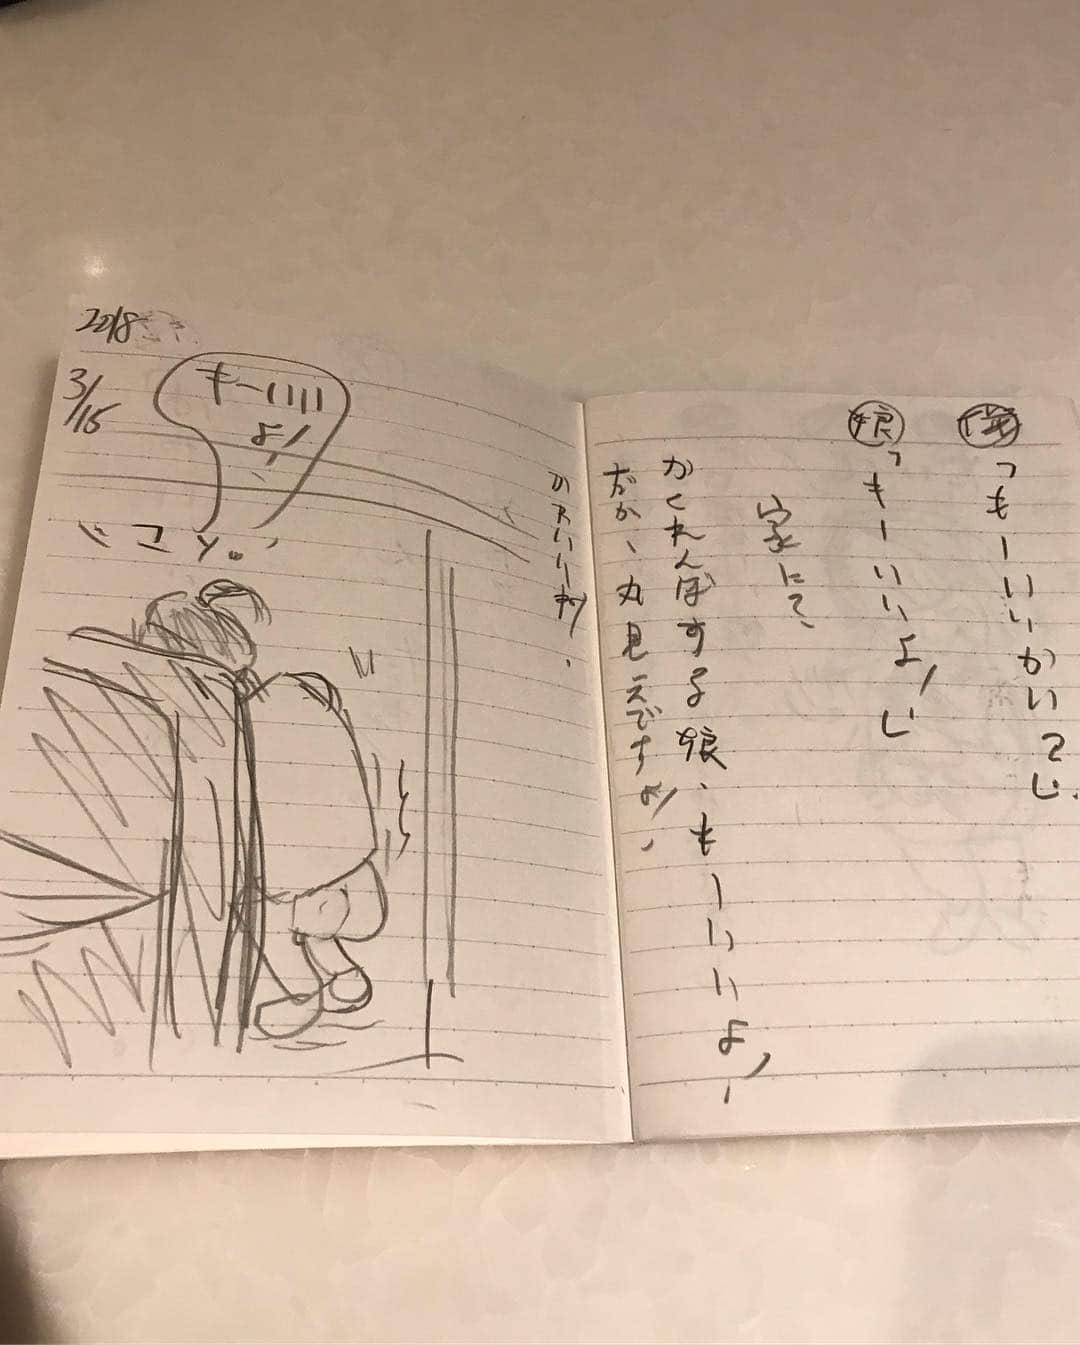 2018
3/15
もーいいよ!
俺「もーいいかい?」
娘「もーいいよ!」
家にて、
かくれんぼする娘、もーいいよ!
だが、丸見えですよ!、